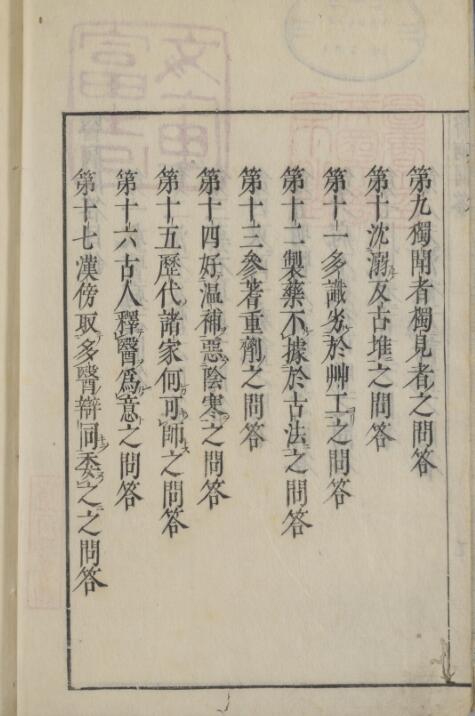 第九獨聞者獨見者之問答
第十沈溺反古堆之問答
第十一多識劣於艸工之問答
第十二製藥不據於古法之問答
第十三參著重劑之問答
第十四好温補惡陰寒之問答
第十五歷代諸家何可師之問答
第十六古人釋醫爲意之問答
第十七漢傍取多醫辯同委之之問答